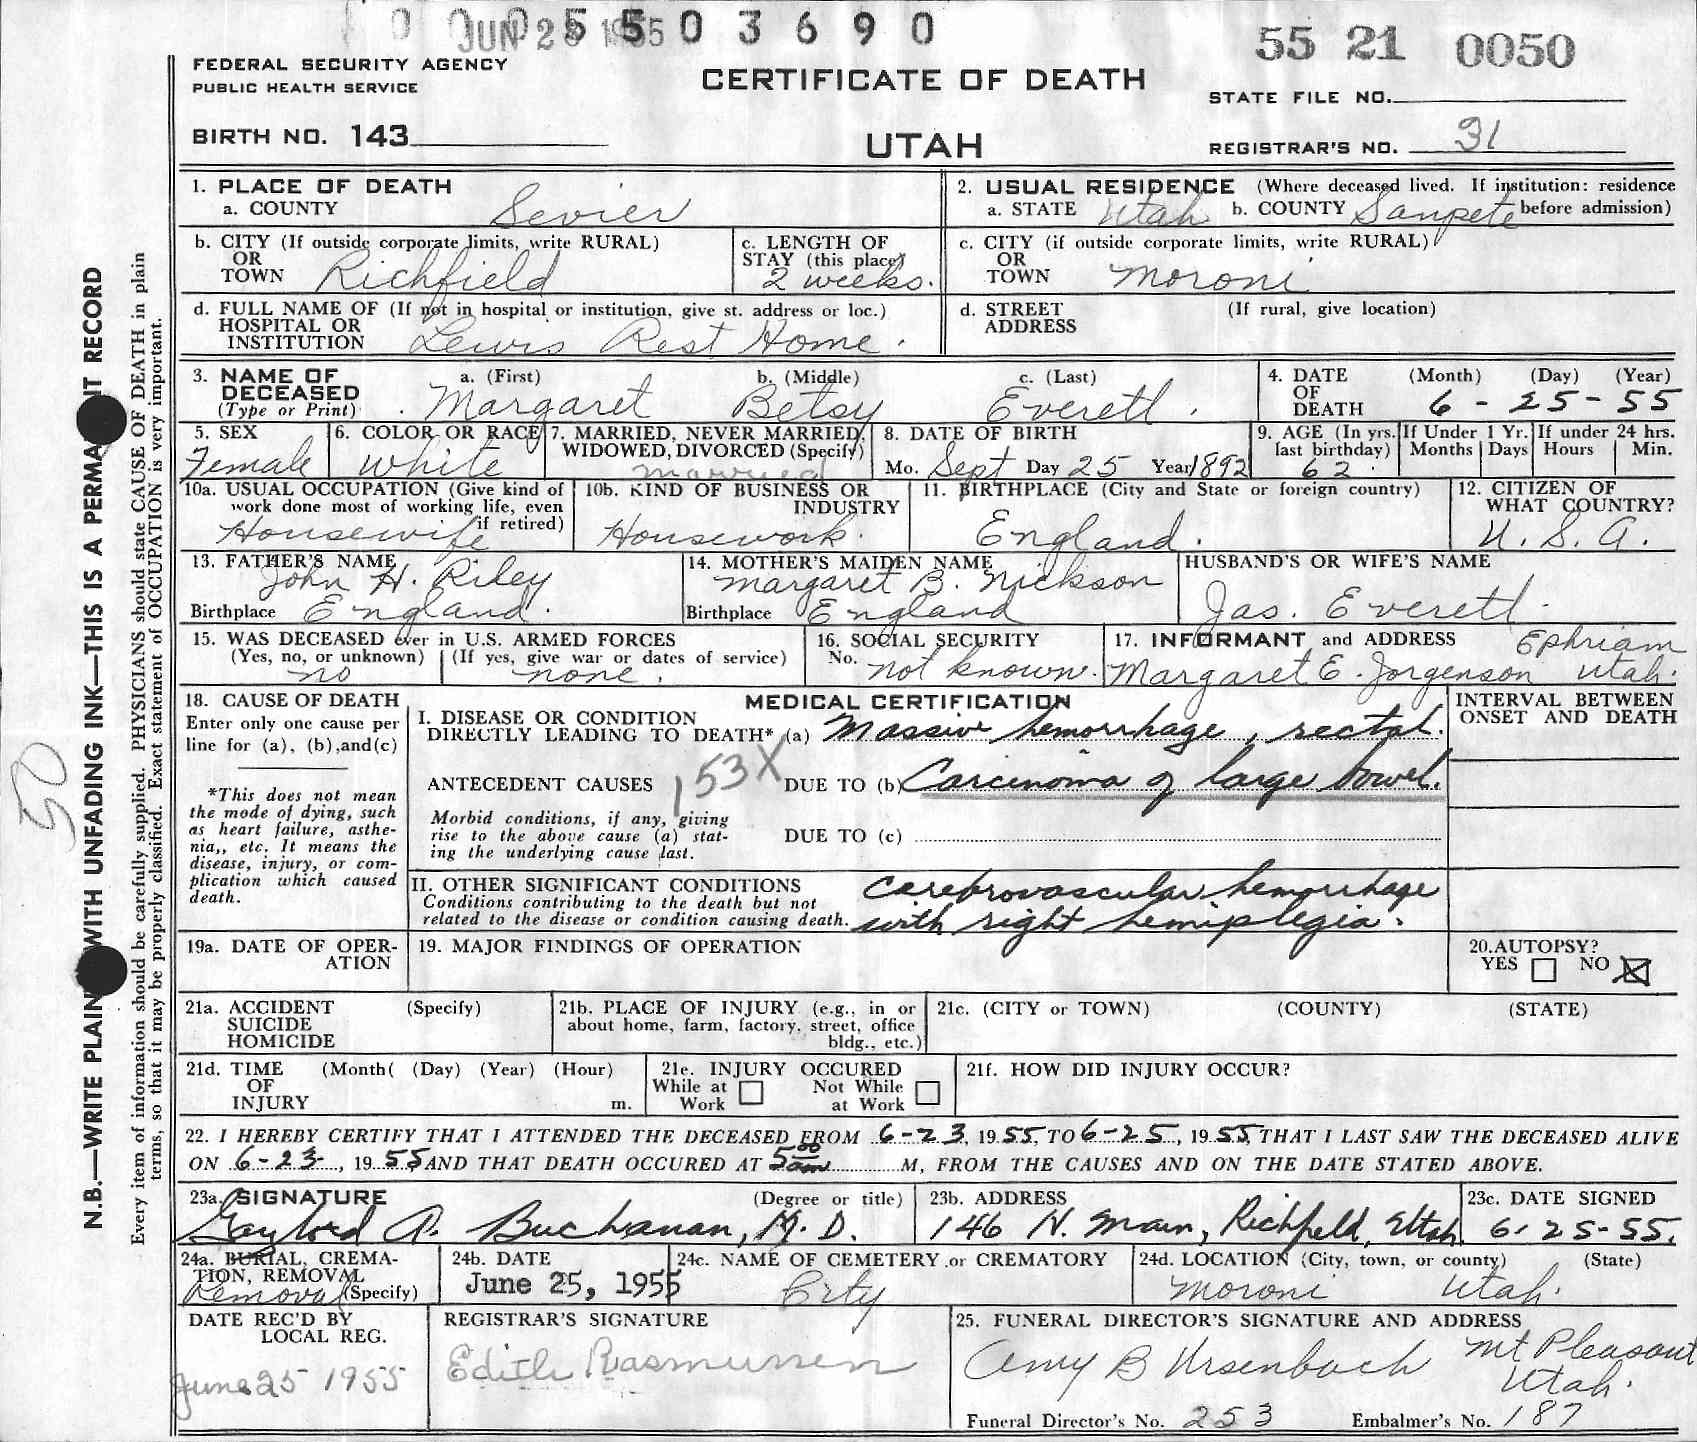 0 0 0 5 5 0 3 6 9 0
JUN 28 1955
55 21 0050
FEDERAL SECURITY AGENCY
PUBLIC HEALTH SERVICE
CERTIFICATE OF DEATH
STATE FILE NO.
BIRTH NO. 143
UTAH
REGISTRAR'S NO. 31
1. PLACE OF DEATH
a. COUNTY Sevier
2. USUAL RESIDENCE (Where deceased lived. If institution: residence
a. STATE Utah b. COUNTY Sanpete before admission)
b. CITY (If outside corporate limits, write RURAL)
OR
TOWN Richfield
c. LENGTH OF
STAY (this place)
2 weeks.
c. CITY (if outside corporate limits, write RURAL)
OR
TOWN Moroni
d. FULL NAME OF (If not in hospital or institution, give st. address or loc.)
HOSPITAL OR
INSTITUTION Lewis Rest Home.
d. STREET (If rural, give location)
ADDRESS
3. NAME OF a. (First) b. (Middle) c. (Last)
DECEASED
(Type or Print) Margaret Betsy Everett.
4. DATE (Month) (Day) (Year)
OF
DEATH 6 - 25 - 55
5. SEX
Female
6. COLOR OR RACE
White
7. MARRIED, NEVER MARRIED,
WIDOWED, DIVORCED (Specify)
Married
8. DATE OF BIRTH
Mo. Sept Day 25 Year 1892
9. AGE (In yrs.
last birthday)
62
If Under 1 Yr.
Months Days
If under 24 hrs.
Hours Min.
10a. USUAL OCCUPATION (Give kind of
work done most of working life, even
if retired)
Housewife
10b. KIND OF BUSINESS OR
INDUSTRY
Housework.
11. BIRTHPLACE (City and State or foreign country)
England.
12. CITIZEN OF
WHAT COUNTRY?
U. S. A.
13. FATHER'S NAME
John H. Riley
Birthplace England.
14. MOTHER'S MAIDEN NAME
Margaret B. Nickson
Birthplace England
HUSBAND'S OR WIFE'S NAME
Jas. Everett.
15. WAS DECEASED ever in U.S. ARMED FORCES
(Yes, no, or unknown) (If yes, give war or dates of service)
no none.
16. SOCIAL SECURITY
No. not known.
17. INFORMANT and ADDRESS Ephriam
Margaret E. Jorgenson Utah.
18. CAUSE OF DEATH
Enter only one cause per
line for (a), (b), and (c)
*This does not mean
the mode of dying, such
as heart failure, asthe-
nia,, etc. It means the
disease, injury, or com-
plication which caused
death.
MEDICAL CERTIFICATION
INTERVAL BETWEEN
ONSET AND DEATH
I. DISEASE OR CONDITION
DIRECTLY LEADING TO DEATH* (a) Massive hemorrhage, rectal.
ANTECEDENT CAUSES 153X DUE TO (b) Carcinoma of large bowel.
Morbid conditions, if any, giving
rise to the above cause (a) stat-
ing the underlying cause last.
DUE TO (c)
II. OTHER SIGNIFICANT CONDITIONS
Conditions contributing to the death but not
related to the disease or condition causing death.
Cerebrovascular hemorrhage
with right hemiplegia.
19a. DATE OF OPER-
ATION
19. MAJOR FINDINGS OF OPERATION
20. AUTOPSY?
YES NO
21a. ACCIDENT (Specify)
SUICIDE
HOMICIDE
21b. PLACE OF INJURY (e.g., in or
about home, farm, factory, street, office
bldg., etc.)
21c. (CITY or TOWN) (COUNTY) (STATE)
21d. TIME (Month( (Day) (Year) (Hour)
OF
INJURY m.
21e. INJURY OCCURED
While at Not While
Work at Work
21f. HOW DID INJURY OCCUR?
22. I HEREBY CERTIFY THAT I ATTENDED THE DECEASED FROM 6-23, 1955, TO 6-25, 1955, THAT I LAST SAW THE DECEASED ALIVE
ON 6-23, 1955 AND THAT DEATH OCCURED AT 5 00 am M, FROM THE CAUSES AND ON THE DATE STATED ABOVE.
23a. SIGNATURE (Degree or title)
Gaylord A. Buchanan, M. D.
23b. ADDRESS
146 N. Main, Richfield, Utah.
23c. DATE SIGNED
6-25-55.
24a. BURIAL, CREMA-
TION, REMOVAL
Removal (Specify)
24b. DATE
June 25, 1955
24c. NAME OF CEMETERY or CREMATORY
City
24d. LOCATION (City, town, or county) (State)
Moroni Utah.
DATE REC'D BY
LOCAL REG.
June 25 1955
REGISTRAR'S SIGNATURE
Edith Rasmussen
25. FUNERAL DIRECTOR'S SIGNATURE AND ADDRESS
Amy B Ursenbach Mt Pleasant
Utah.
Funeral Director's No. 253 Embalmer's No. 187
N.B.—WRITE PLAIN WITH UNFADING INK—THIS IS A PERMA IT RECORD
Every item of information should be carefully supplied. PHYSICIANS should state CAUSE OF DEATH in plain
terms, so that it may be properly classified. Exact statement of OCCUPATION is very important.
50